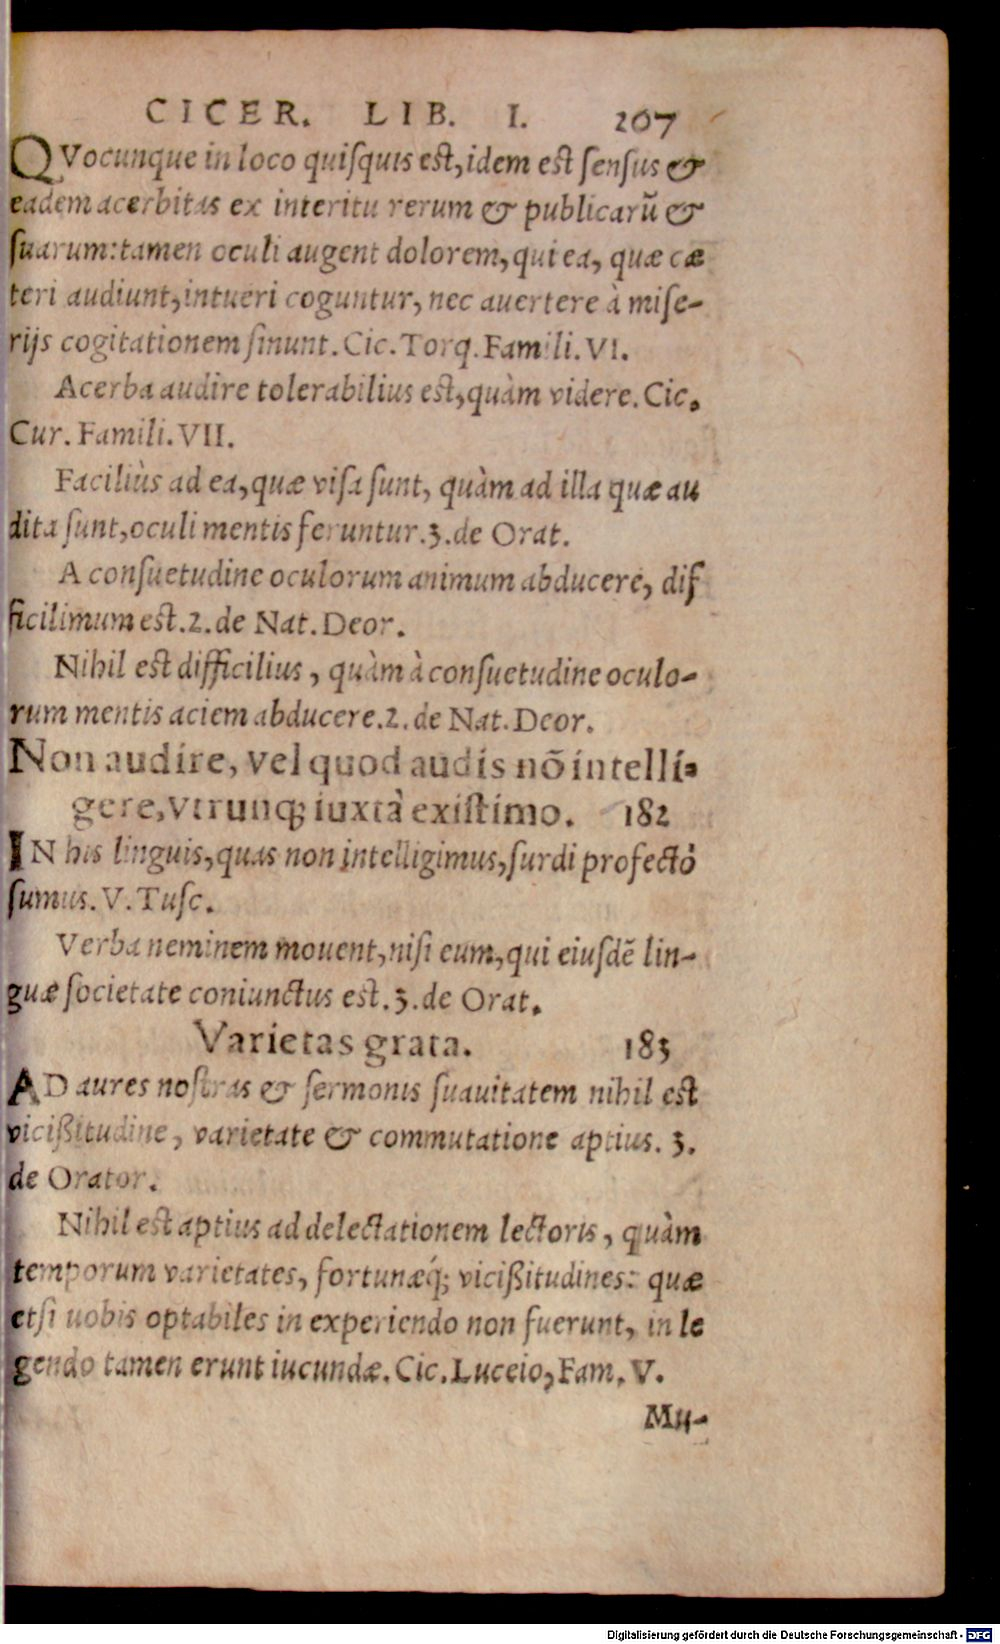 CICER. LIB. I. 207
QVocunque in loco quisquis est, idem est sensus &
eadem acerbitas ex interitu rerum & publicarū &
suarum: tamen oculi augent dolorem, qui ea, quæ cæ
teri audiunt, intueri coguntur, nec auertere à mise-
rijs cogitationem sinunt. Cic. Torq. Famili. VI.
Acerba audire tolerabilius est, quàm videre. Cic.
Cur. Famili. VII.
Faciliùs ad ea, quæ visa sunt, quàm ad illa quæ au
dita sunt, oculi mentis feruntur. 3. de Orat.
A consuetudine oculorum animum abducere, dif
ficilimum est. 2. de Nat. Deor.
Nihil est difficilius, quàm à consuetudine oculo-
rum mentis aciem abducere. 2. de Nat. Deor.
Non audire, vel quod audis nō intelli-
gere, vtrunq; iuxtà existimo. 182
IN his linguis, quas non intelligimus, surdi profectò
sumus. V. Tusc.
Verba neminem mouent, nisi eum, qui eiusdē lin-
guæ societate coniunctus est. 3. de Orat.
Varietas grata. 183
AD aures nostras & sermonis suauitatem nihil est
vicißitudine, varietate & commutatione aptius. 3.
de Orator.
Nihil est aptius ad delectationem lectoris, quàm
temporum varietates, fortunæq́; vicißitudines: quæ
etsi uobis optabiles in experiendo non fuerunt, in le
gendo tamen erunt iucundæ. Cic. Luceio, Fam. V.
Mu-
Digitalisierung gefördert durch die Deutsche Forschungsgemeinschaft - DFG